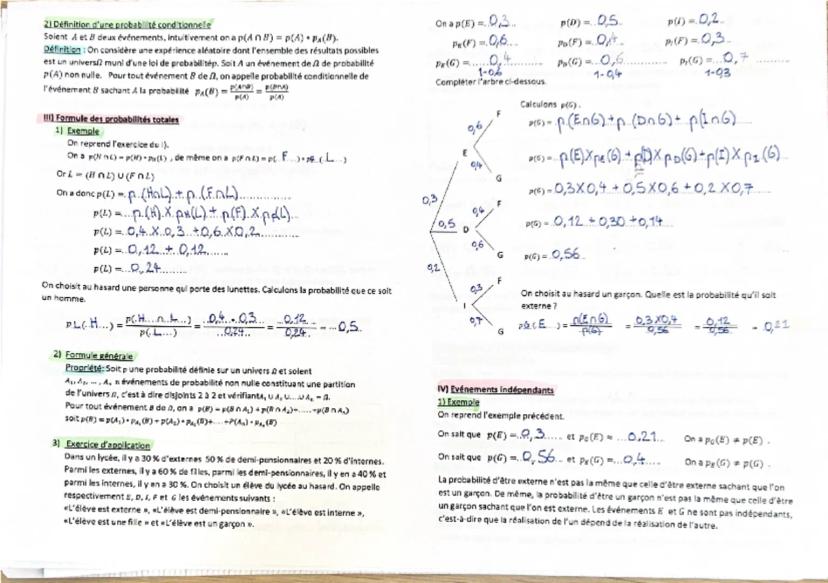 2) Définition d'une probabilité conditionnelle
Soient A et B deux événements, intuitivement on a p(A ∩ B) = p(A) × p_A(B).
Définition : On considère une expérience aléatoire dont l'ensemble des résultats possibles
est un univers Ω muni d'une loi de probabilité p. Soit A un événement de Ω de probabilité
p(A) non nulle. Pour tout événement B de Ω, on appelle probabilité conditionnelle de
l'événement B sachant A la probabilité p_A(B) = p(A∩B)/p(A) = p(B∩A)/p(A)
III) Formule des probabilités totales
1) Exemple
On reprend l'exercice du I).
On a p(H ∩ L) = p(H) × p_H(L), de même on a p(F ∩ L) = p(.. F ..) × p_F (.. L ...)
Or L = (H ∩ L) ∪ (F ∩ L)
On a donc p(L) = p.(H∩L) + p.(F∩L)
p(L) = p.(H) X p_H(L) + p.(F) X p_F(L)
p(L) = 0,4 X 0,3 + 0,6 X 0,2
p(L) = 0,12 + 0,12
p(L) = 0,24
On choisit au hasard une personne qui porte des lunettes. Calculons la probabilité que ce soit
un homme.
p_L(.H...) = p(.H...∩..L..)/p(.L...) = 0,4 × 0,3/0,24 = 0,12/0,24 = 0,5
2) Formule générale
Propriété: Soit p une probabilité définie sur un univers Ω et soient
A₁, A₂, ..., Aₙ n événements de probabilité non nulle constituant une partition
de l'univers Ω, c'est à dire disjoints 2 à 2 et vérifiant A₁ ∪ A₂ ∪....∪ Aₙ = Ω.
Pour tout événement B de Ω, on a p(B) = p(B ∩ A₁) + p(B ∩ A₂)+.....+p(B ∩ Aₙ)
soit p(B) = p(A₁) × p_A₁(B) + p(A₂) × p_A₂(B)+....+P(Aₙ) × p_Aₙ(B)
3) Exercice d'application
Dans un lycée, il y a 30 % d'externes 50 % de demi-pensionnaires et 20 % d'internes.
Parmi les externes, il y a 60 % de filles, parmi les demi-pensionnaires, il y en a 40 % et
parmi les internes, il y en a 30 %. On choisit un élève du lycée au hasard. On appelle
respectivement E, D, I, F et G les événements suivants :
«L'élève est externe », «L'élève est demi-pensionnaire », «L'élève est interne »,
«L'élève est une fille » et «L'élève est un garçon ».
On a p(E) = 0,3 p(D) = 0,5 p(I) = 0,2
p_E(F) = 0,6 p_D(F) = 0,4 p_I(F) = 0,3
p_E(G) = 0,4 p_D(G) = 0,6 p_I(G) = 0,7
1-0,6 1-0,4 1-0,3
Compléter l'arbre ci-dessous.
0,3 E
0,6 F
0,4 G
0,5 D
0,4 F
0,6 G
0,2 I
0,3 F
0,7 G
Calculons p(G).
p(G) = p.(E∩G) + p.(D∩G) + p(I∩G)
p(G) = p(E) X p_E(G) + p(D) X p_D(G) + p(I) X p_I(G)
p(G) = 0,3 X 0,4 + 0,5 X 0,6 + 0,2 X 0,7
p(G) = 0,12 + 0,30 + 0,14
p(G) = 0,56
On choisit au hasard un garçon. Quelle est la probabilité qu'il soit
externe ?
p_G(E) = p(E∩G)/p(G) = 0,3 X 0,4/0,56 = 0,12/0,56 = 0,21
IV) Evénements indépendants
1) Exemple
On reprend l'exemple précédent.
On sait que p(E) = 0,3 et p_G(E) ≈ 0,21 On a p_G(E) ≠ p(E) .
On sait que p(G) = 0,56 et p_E(G) = 0,4 On a p_E(G) ≠ p(G) .
La probabilité d'être externe n'est pas la même que celle d'être externe sachant que l'on
est un garçon. De même, la probabilité d'être un garçon n'est pas la même que celle d'être
un garçon sachant que l'on est externe. Les événements E et G ne sont pas indépendants,
c'est-à-dire que la réalisation de l'un dépend de la réalisation de l'autre.